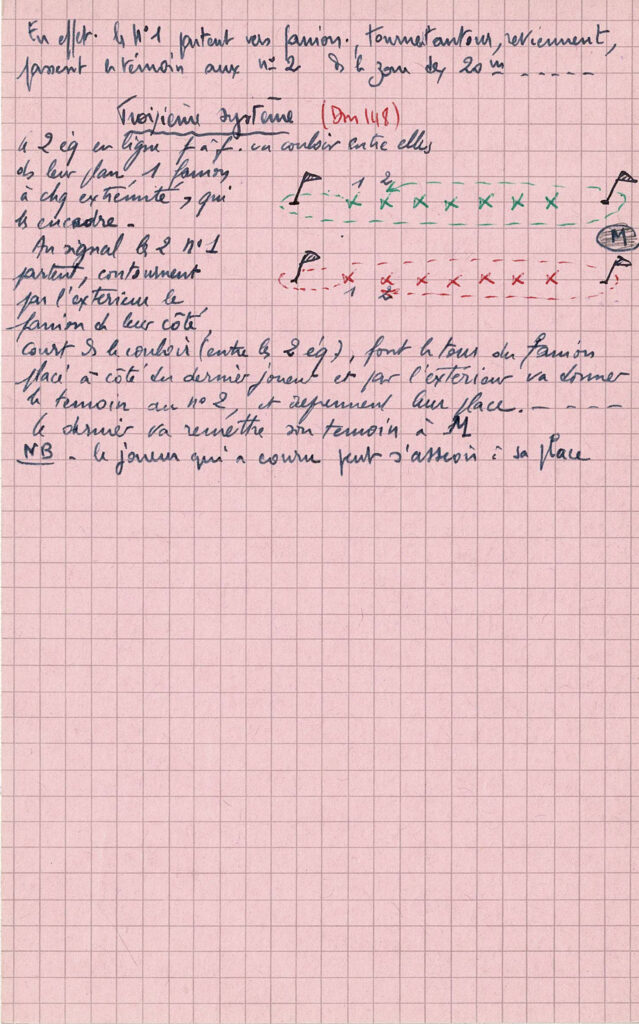 En effet. les n°1 partent vers fanion., tournent autour, reviennent,
passent le témoin aux n° 2 ds la zone des 20 m -----
Troisième système (Dm 148)
les 2 éq en ligne f à f. un couloir entre elles
ds leur plan, 1 fanion
à chq extrémité, qui
les encadre -
Au signal les 2 n°1
partent, contournent
par l'extérieur le
fanion de leur côté,
court ds le couloir (entre les 2 éq), font le tour du fanion
placé à côté du dernier joueur et par l'extérieur va donner
le temoin au n°2, et reprennent leur place. - - - -
le dernier va remettre son temoin à M
NB - le joueur qui a couru peut s'asseoir à sa place
1 2
M
1 2